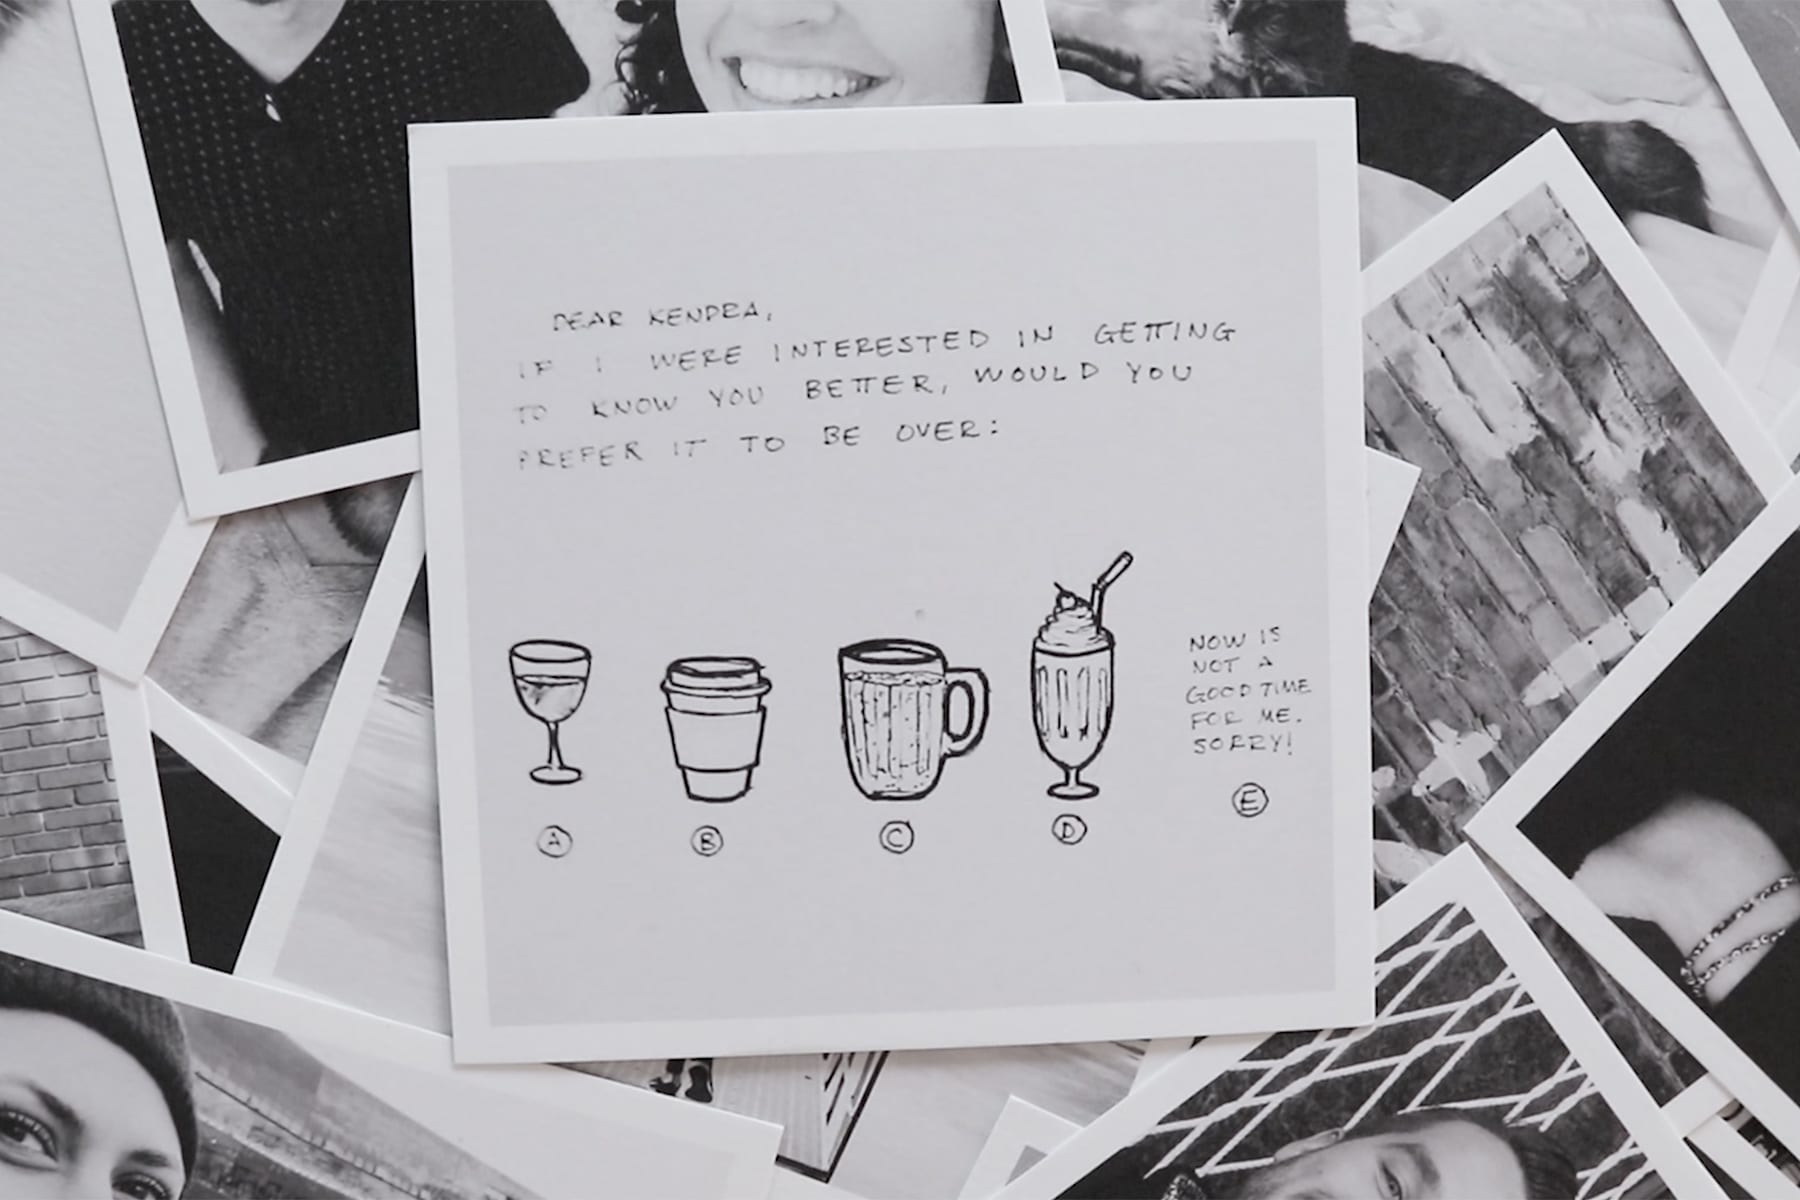 DEAR KENDRA,
IF I WERE INTERESTED IN GETTING
TO KNOW YOU BETTER, WOULD YOU
PREFER IT TO BE OVER:
NOW IS
NOT A
GOOD TIME
FOR ME.
SORRY!
A B C D E